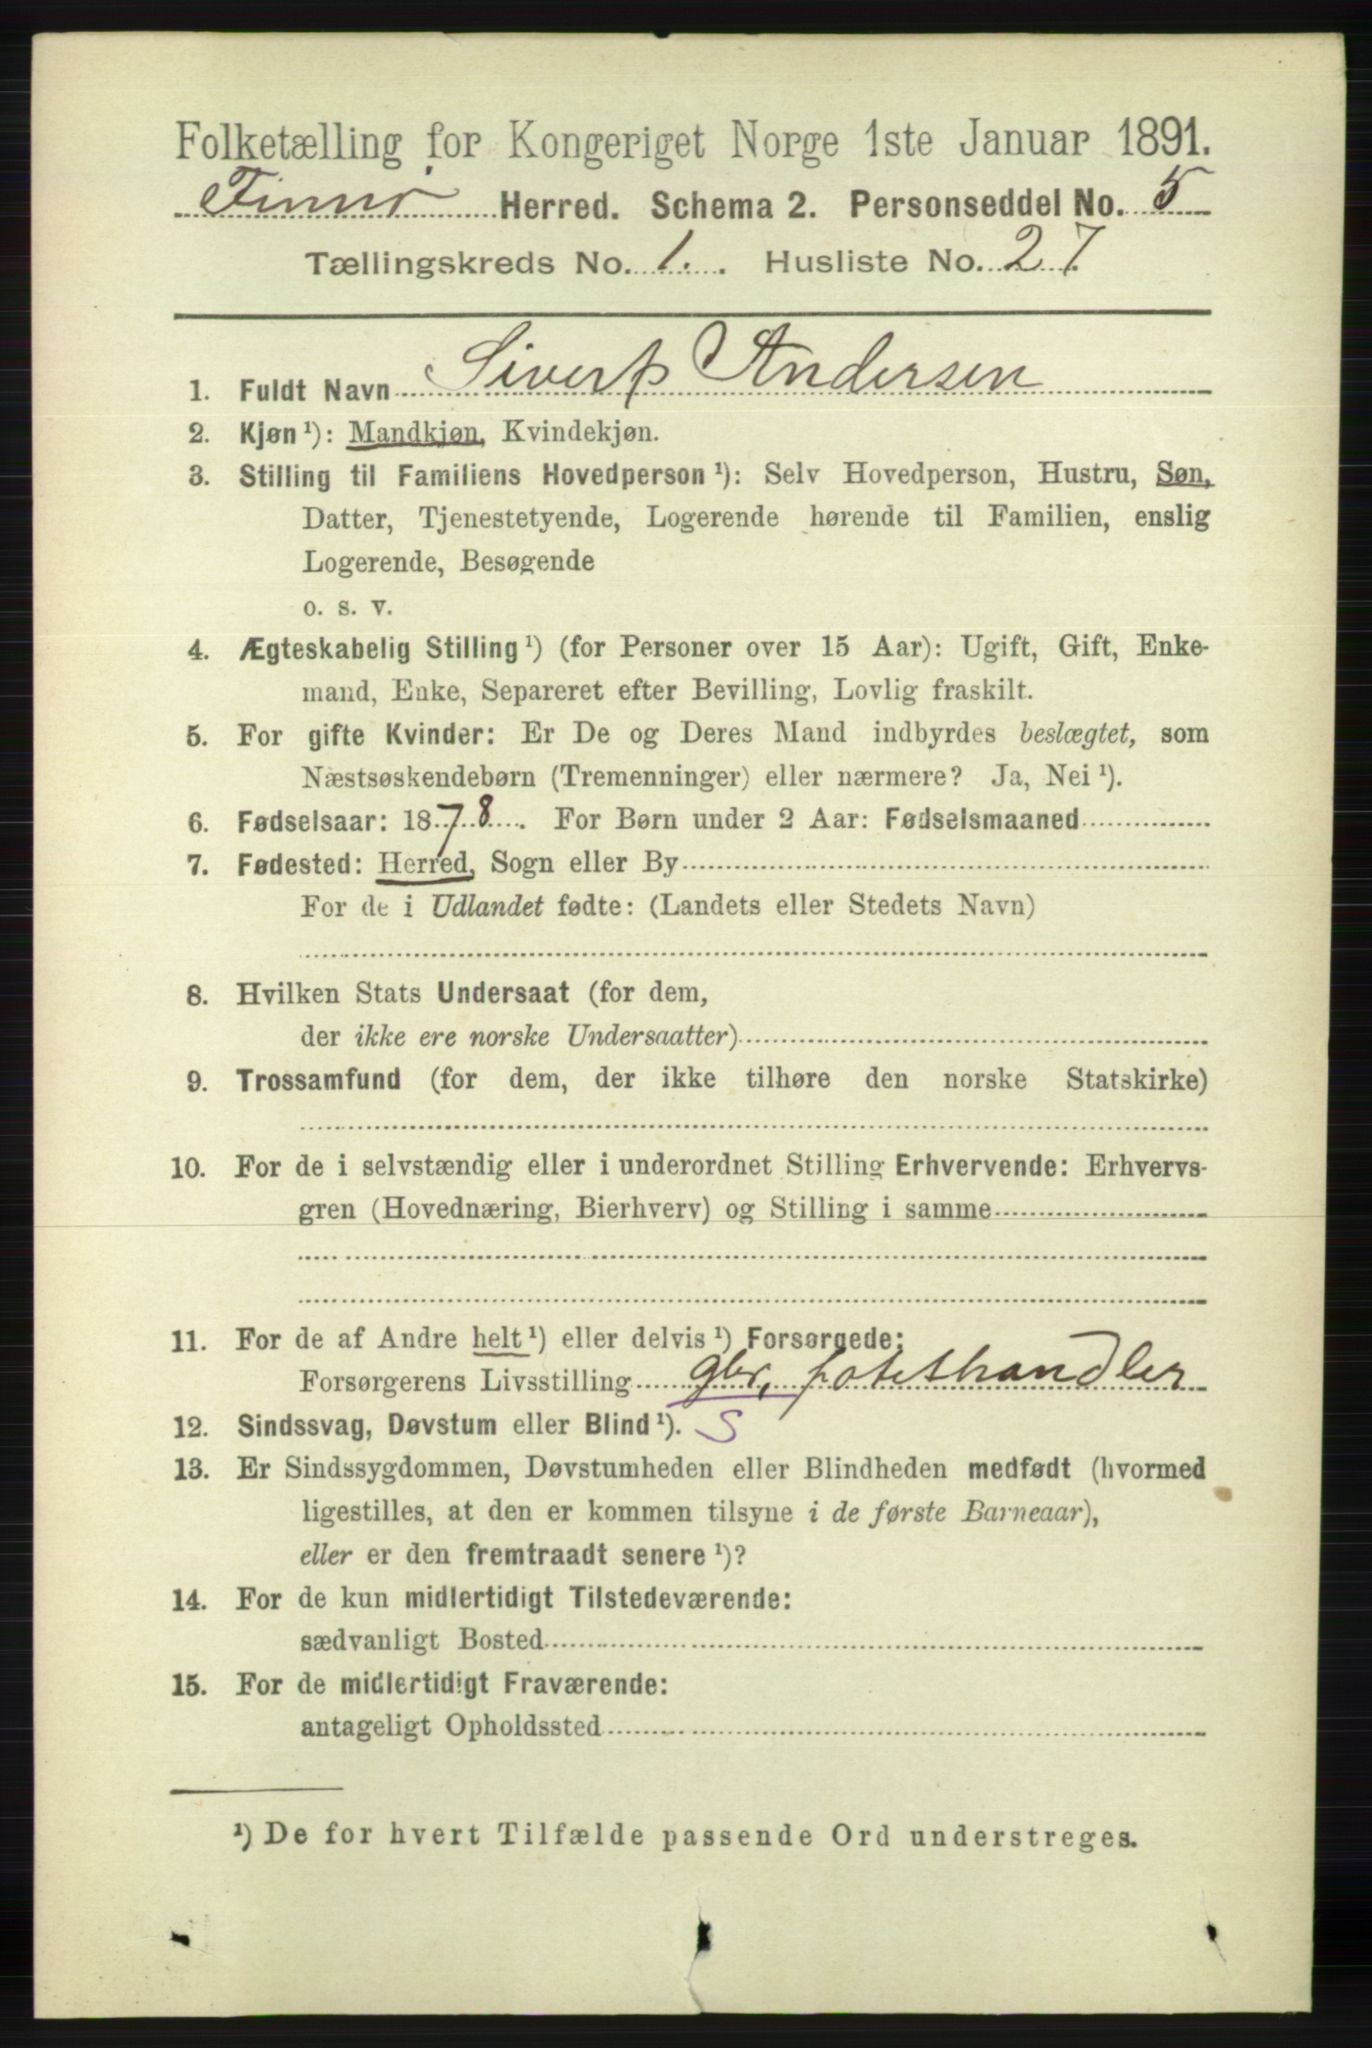 Folketælling for Kongeriget Norge 1ste Januar 1891.
Finnø Herred. Schema 2. Personseddel No. 5
Tællingskreds No. 1. Husliste No. 27
1. Fuldt Navn Sivert Andersen
2. Kjøn ¹): Mandkjøn, Kvindekjøn.
3. Stilling til Familiens Hovedperson ¹): Selv Hovedperson, Hustru, Søn,
Datter, Tjenestetyende, Logerende hørende til Familien, enslig
Logerende, Besøgende
o. s. v.
4. Ægteskabelig Stilling ¹) (for Personer over 15 Aar): Ugift, Gift, Enke-
mand, Enke, Separeret efter Bevilling, Lovlig fraskilt.
5. For gifte Kvinder: Er De og Deres Mand indbyrdes beslægtet, som
Næstsøskendebørn (Tremenninger) eller nærmere? Ja, Nei ¹).
6. Fødselsaar: 1878. For Børn under 2 Aar: Fødselsmaaned
7. Fødested: Herred, Sogn eller By
For de i Udlandet fødte: (Landets eller Stedets Navn)
8. Hvilken Stats Undersaat (for dem,
der ikke ere norske Undersaatter)
9. Trossamfund (for dem, der ikke tilhøre den norske Statskirke)
10. For de i selvstændig eller i underordnet Stilling Erhvervende: Erhvervs-
gren (Hovednæring, Bierhverv) og Stilling i samme
11. For de af Andre helt ¹) eller delvis ¹) Forsørgede:
Forsørgerens Livsstilling gbr,
12. Sindssvag, Døvstum eller Blind ¹). S
13. Er Sindssygdommen, Døvstumheden eller Blindheden medfødt (hvormed
ligestilles, at den er kommen tilsyne i de første Barneaar),
eller er den fremtraadt senere ¹)?
14. For de kun midlertidigt Tilstedeværende:
sædvanligt Bosted
15. For de midlertidigt Fraværende:
antageligt Opholdssted
¹) De for hvert Tilfælde passende Ord understreges.